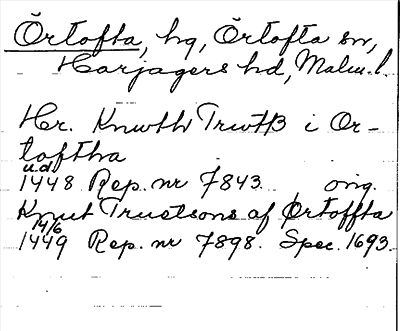 Örtofta, hg, Örtofta sn,
Harjagers hd, Malm. l.
Hr. Knwth Trwtß i Or-
toftha
u.d.
1448 Rep. nr 7843. orig.
Knut Truetsons af Ørtoffta
14/6
1449 Rep. nr 7898. Spec. 1693.